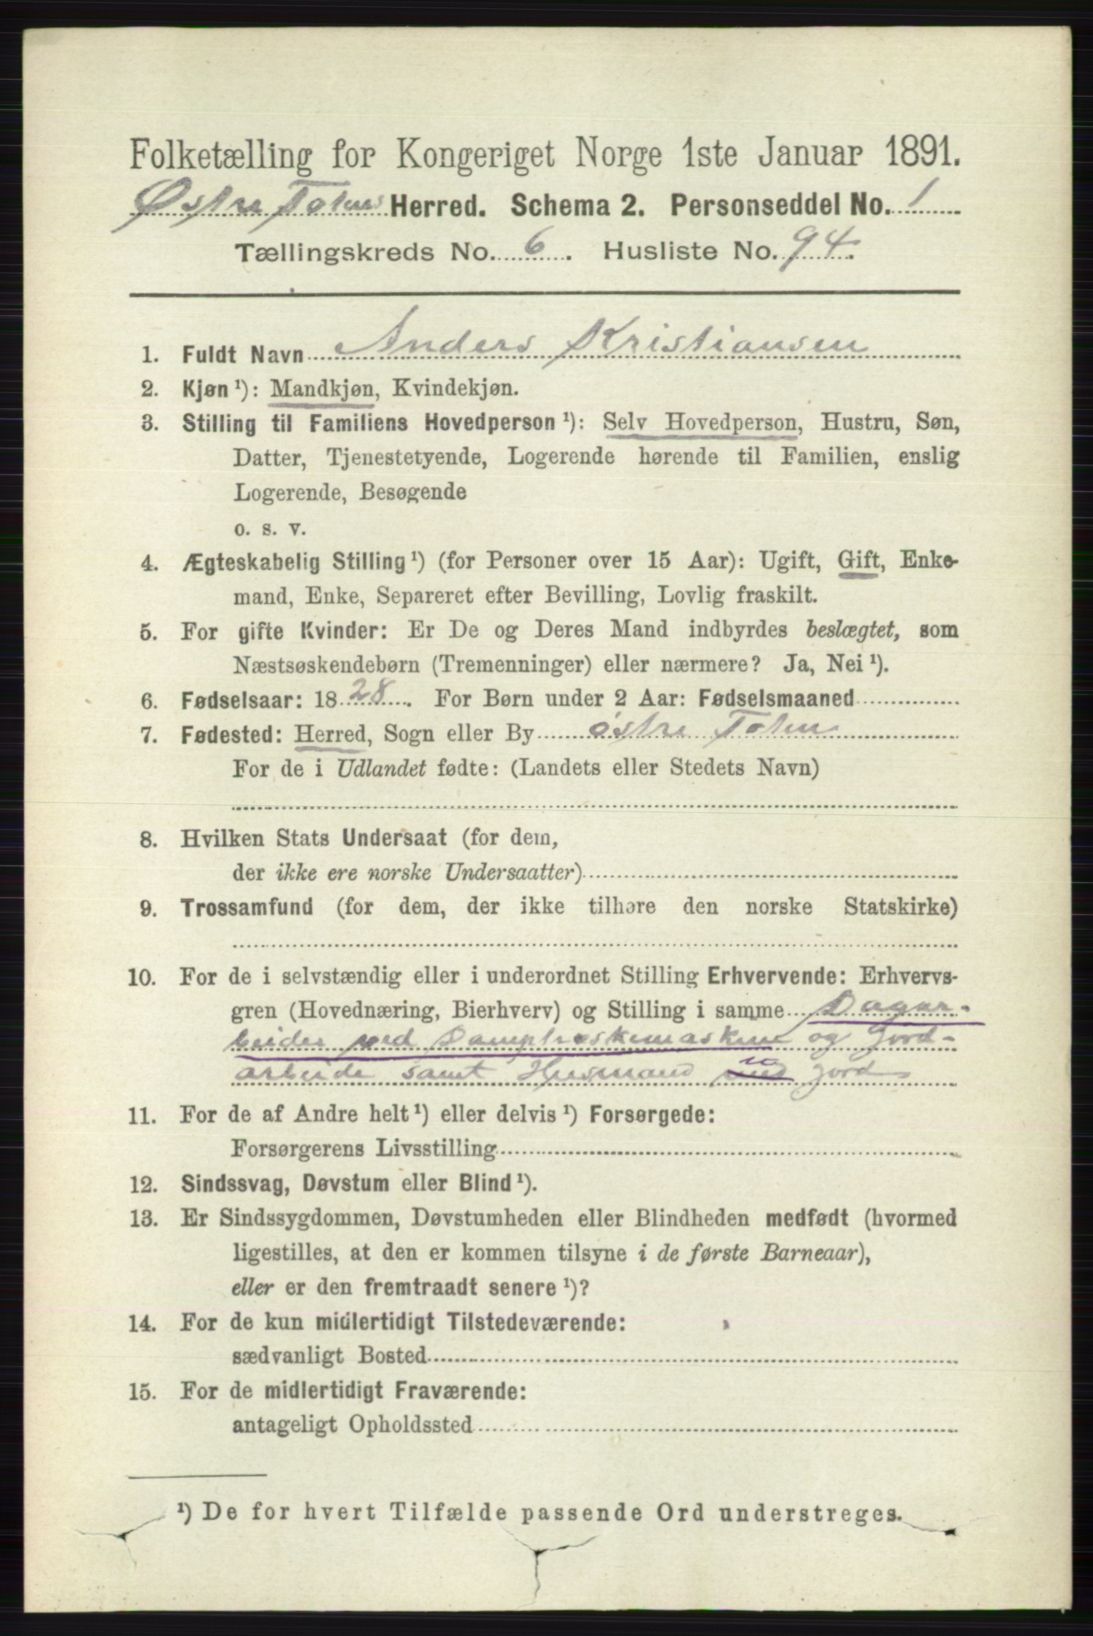 Folketælling for Kongeriget Norge 1ste Januar 1891.
Østre Totens Herred. Schema 2. Personseddel No. 1
Tællingskreds No. 6. Husliste No. 94.
1. Fuldt Navn Anders Kristiansen
2. Kjøn ¹): Mandkjøn, Kvindekjøn.
3. Stilling til Familiens Hovedperson ¹): Selv Hovedperson, Hustru, Søn,
Datter, Tjenestetyende, Logerende hørende til Familien, enslig
Logerende, Besøgende
o. s. v.
4. Ægteskabelig Stilling ¹) (for Personer over 15 Aar): Ugift, Gift, Enke-
mand, Enke, Separeret efter Bevilling, Lovlig fraskilt.
5. For gifte Kvinder: Er De og Deres Mand indbyrdes beslægtet, som
Næstsøskendebørn (Tremenninger) eller nærmere? Ja, Nei ¹).
6. Fødselsaar: 1828. For Børn under 2 Aar: Fødselsmaaned
7. Fødested: Herred, Sogn eller By østre Toten
For de i Udlandet fødte: (Landets eller Stedets Navn)
8. Hvilken Stats Undersaat (for dem,
der ikke ere norske Undersaatter)
9. Trossamfund (for dem, der ikke tilhøre den norske Statskirke)
10. For de i selvstændig eller i underordnet Stilling Erhvervende: Erhvervs-
gren (Hovednæring, Bierhverv) og Stilling i samme Dagar-
beider ved Damptreskemaskine og Jord-
arbeide samt Husmand m jord
11. For de af Andre helt ¹) eller delvis ¹) Forsørgede:
Forsørgerens Livsstilling
12. Sindssvag, Døvstum eller Blind ¹).
13. Er Sindssygdommen, Døvstumheden eller Blindheden medfødt (hvormed
ligestilles, at den er kommen tilsyne i de første Barneaar),
eller er den fremtraadt senere ¹)?
14. For de kun midlertidigt Tilstedeværende:
sædvanligt Bosted
15. For de midlertidigt Fraværende:
antageligt Opholdssted
¹) De for hvert Tilfælde passende Ord understreges.